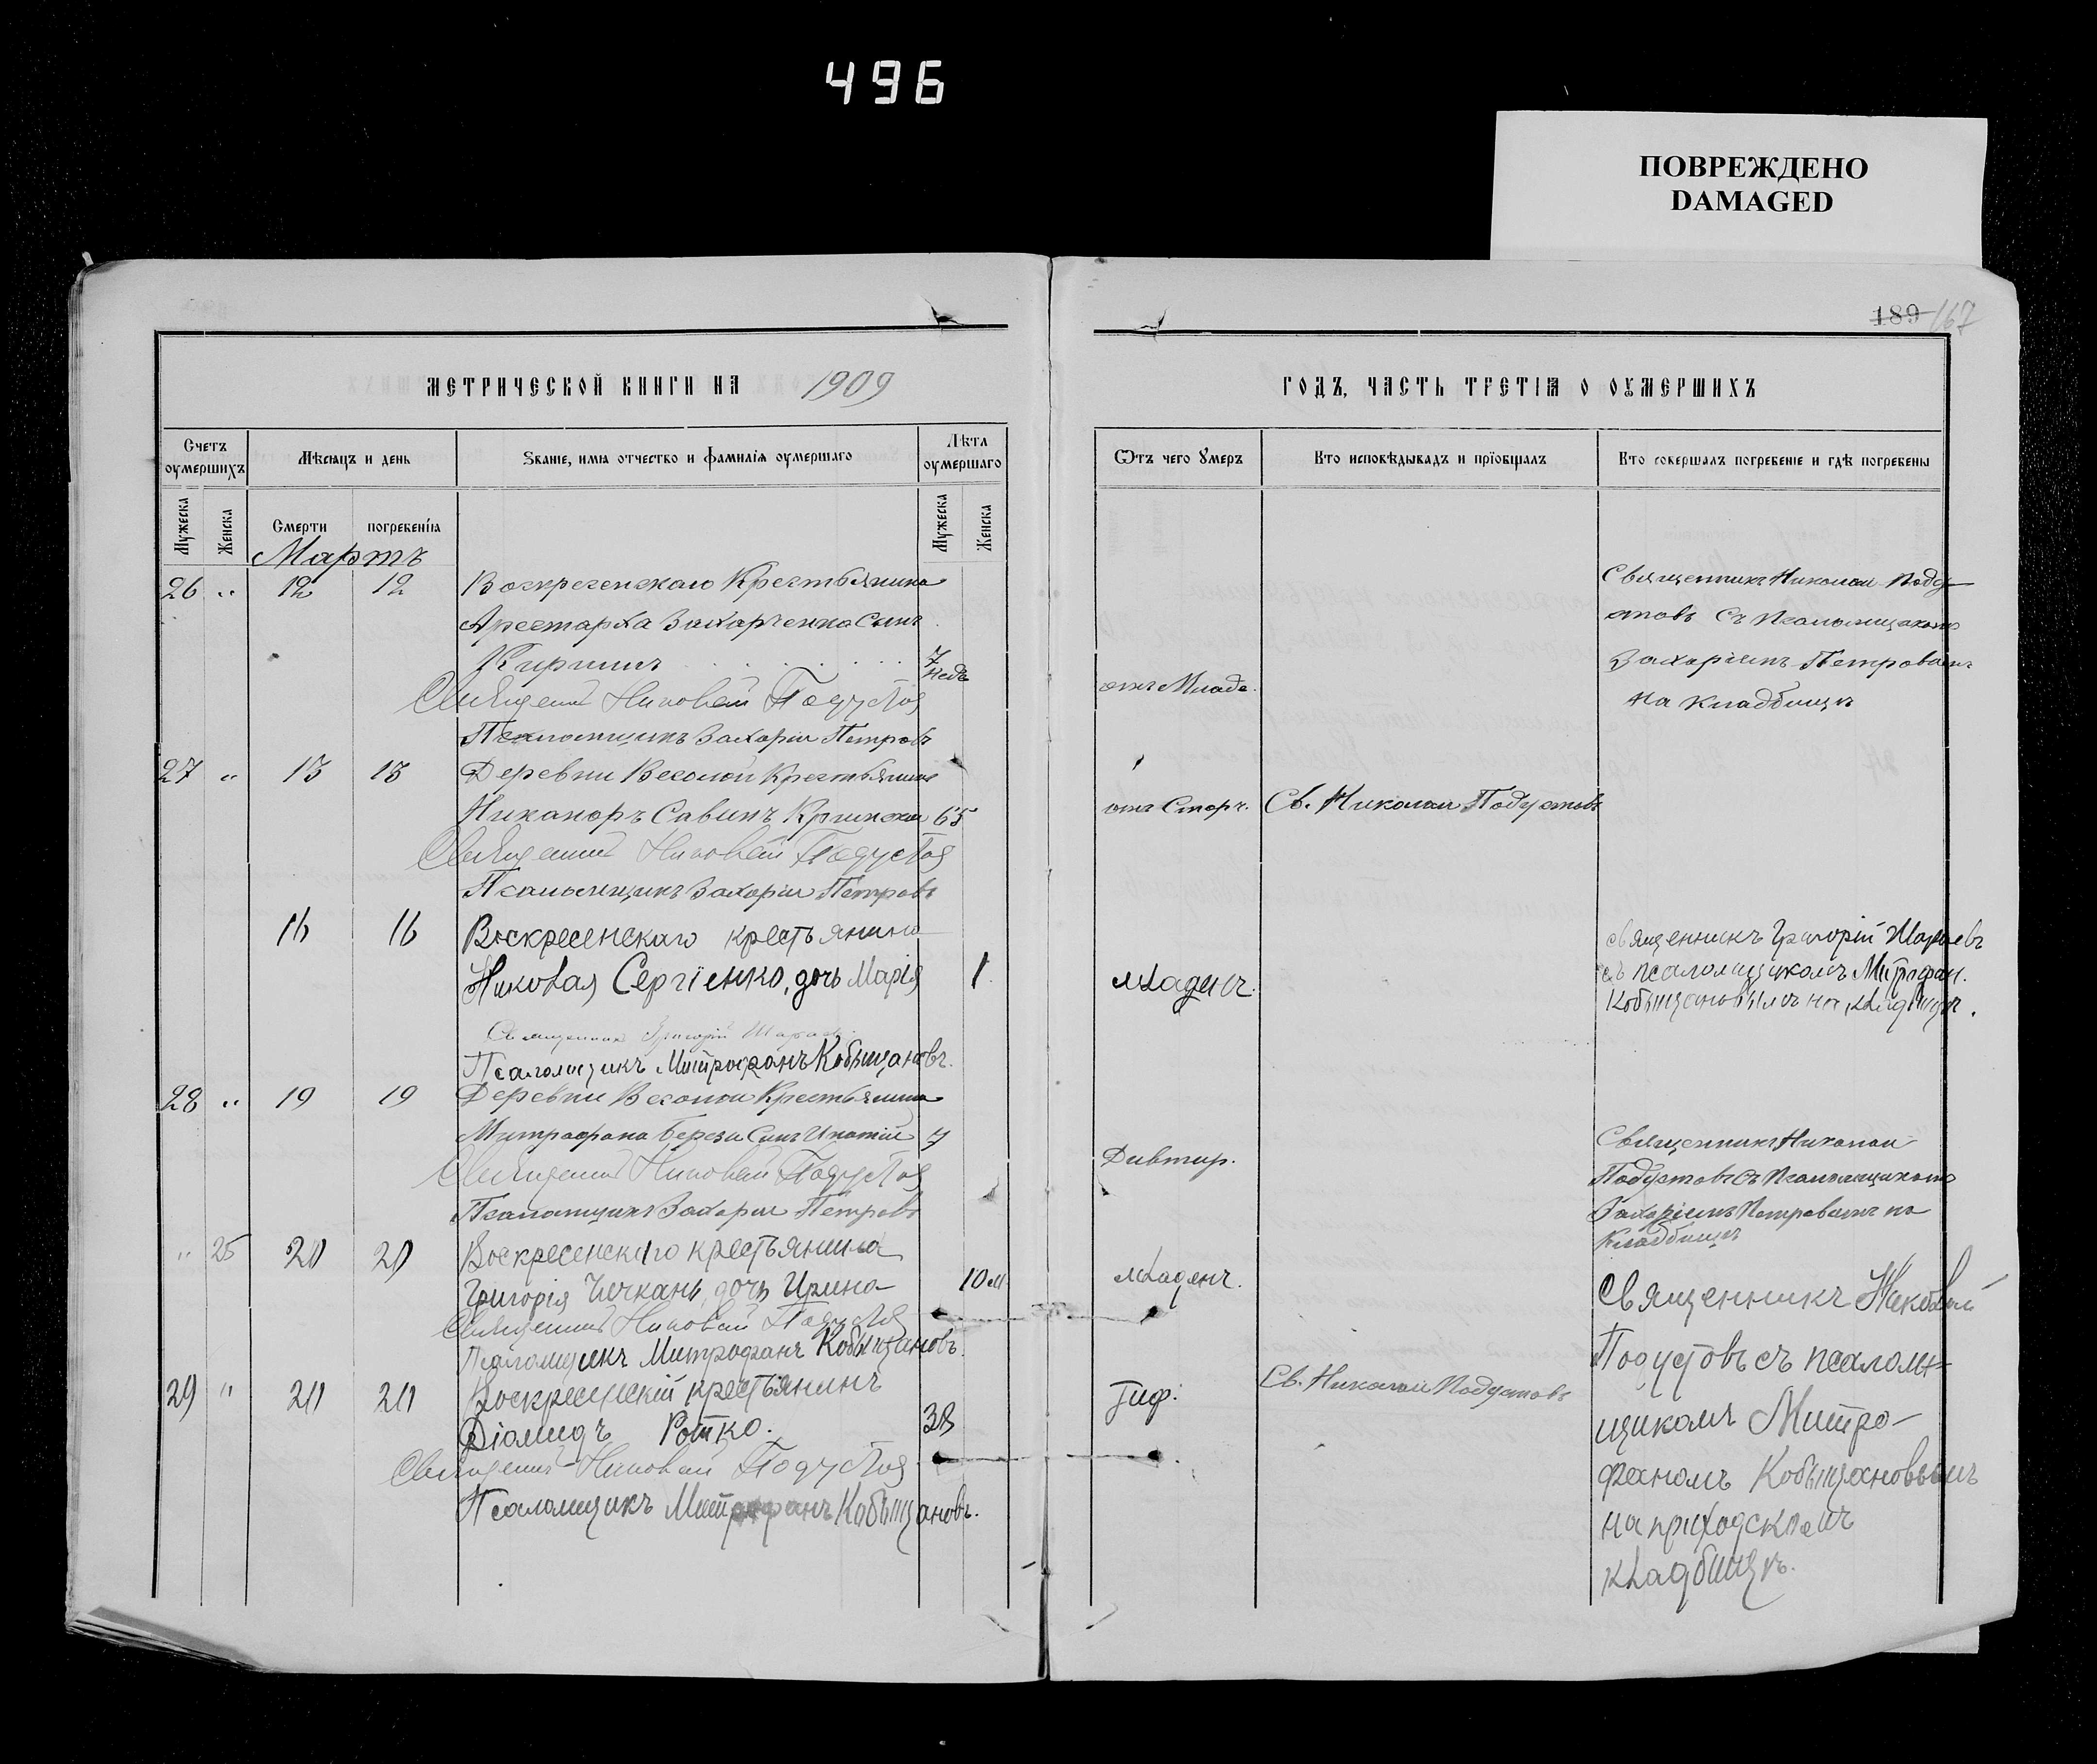 496
ПОВРЕЖДЕНО
DAMAGED
189 167
МЕТРИЧЕСКОЙ КНИГИ НА 1909
ГОДЪ, ЧАСТЬ ТРЕТІѦ О ОУМЕРШИХЪ
Счетъ оумершихъ
Мѣсяцъ и день
Званіе, имя отчество и фамилія оумершаго
Лѣта оумершаго
Ѿтъ чего Умеръ
Кто исповѣдывалъ и пріобщалъ
Кто совершалъ погребеніе и гдѣ погребены
Мужеска
Женска
Смерти
погребенія
Мужеска
Женска
Мартъ
26 " 12 12 Воскресенскаго Крестьянина
Аристарха Захарченка Сынъ
7 недѣ
отъ Младе.
Священникъ Николай Подустов
Псаломщикъ Захарій Петровъ
Священникъ Николай Поду-
стовъ съ Псаломщикомъ
Захаріемъ Петровымъ
на кладбищѣ
27 " 13 13 Деревни Веселой Крестьянинъ
Никаноръ Савинъ 65
отъ Стар. Св. Николай Подустовъ
Священникъ Николай Подустов
Псаломщикъ Захарій Петровъ
16 16 Воскресенскаго крестьянина
Николая Сергіенко, дочь Марія 1
младенч.
Священникъ Григорій
Псаломщикъ Митрофанъ Кобыщановъ.
священникъ Григорій
съ псаломщикомъ Митрофан.
Кобыщановымъ на кладбищѣ.
28 " 19 19 Деревни Веселой Крестьянина
Митрофана Березы Сынъ Ипатій 7
Дивтир.
Священникъ Николай Подустов
Псаломщикъ Захарій Петровъ
Священникъ Николай
Подустовъ съ Псаломщикомъ
Захаріемъ Петровымъ на
Кладбищѣ
" 25 20 20 Воскресенскаго крестьянина
Григорія Чечкань, дочь Ирина 10 м
младенч.
Священникъ Николай Подустов
Псаломщикъ Митрофанъ Кобыщановъ.
29 " 20 20 Воскресенскій крестьянинъ
Діомидъ Ротко. 38
Тиф. Св. Николай Подустовъ
Священникъ Николай Подустов
Псаломщикъ Митрофанъ Кобыщановъ.
Священникъ Николай
Подустовъ съ псалом-
щикомъ Митро-
фаномъ Кобыщановымъ
на приходскомъ
кладбищѣ.